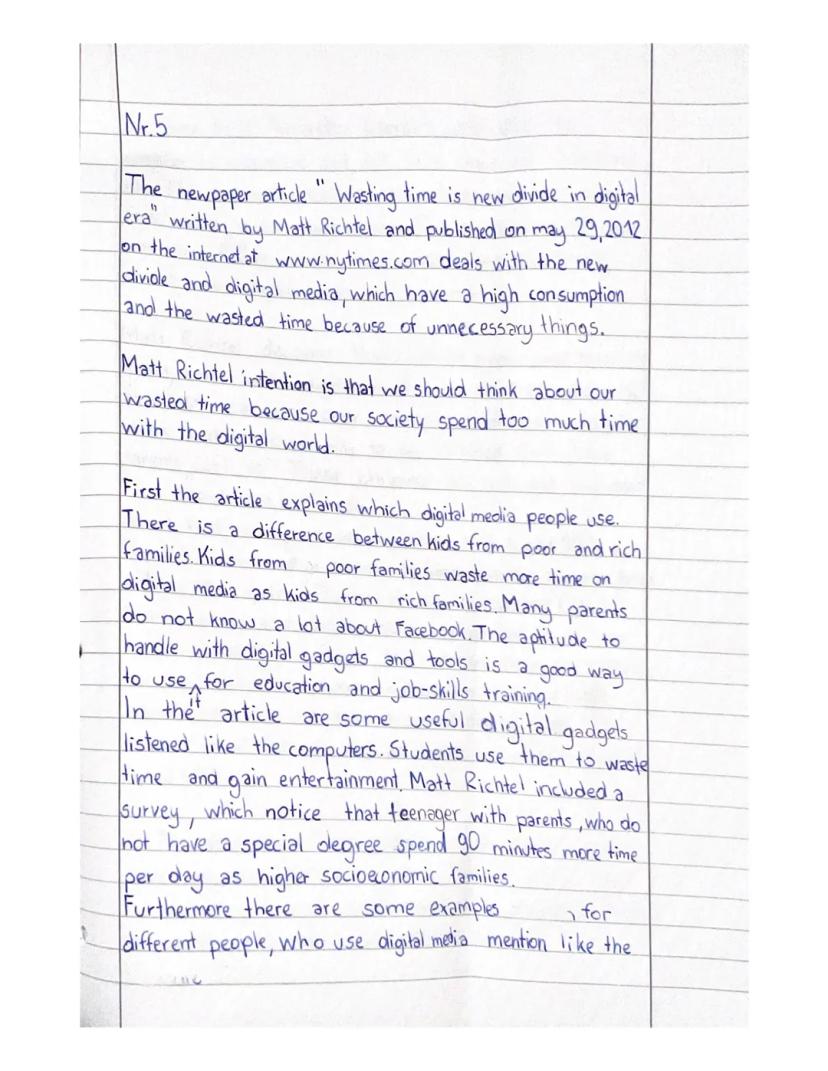 Nr.5
The newpaper article " Wasting time is new divide in digital
era" written by Matt Richtel and published on may 29,2012
on the internet at www.nytimes.com deals with the new
divide and digital media, which have a high consumption
and the wasted time because of unnecessary things.
Matt Richtel intention is that we should think about our
wasted time because our society spend too much time
with the digital world.
First the article explains which digital media people use.
There is a difference between kids from poor and rich
families. Kids from poor families waste more time on
digital media as kids from rich families. Many parents
do not know a lot about Facebook. The aptitude to
handle with digital gadgets and tools is a good way
to use it for education and job-skills training.
In the article are some useful digital gadgets
listened like the computers. Students use them to waste
time and gain entertainment. Matt Richtel included a
survey, which notice that teenager with parents, who do
not have a special degree spend 90 minutes more time
per day as higher socioeconomic families.
Furthermore there are some examples , for
different people, who use digital media mention like the